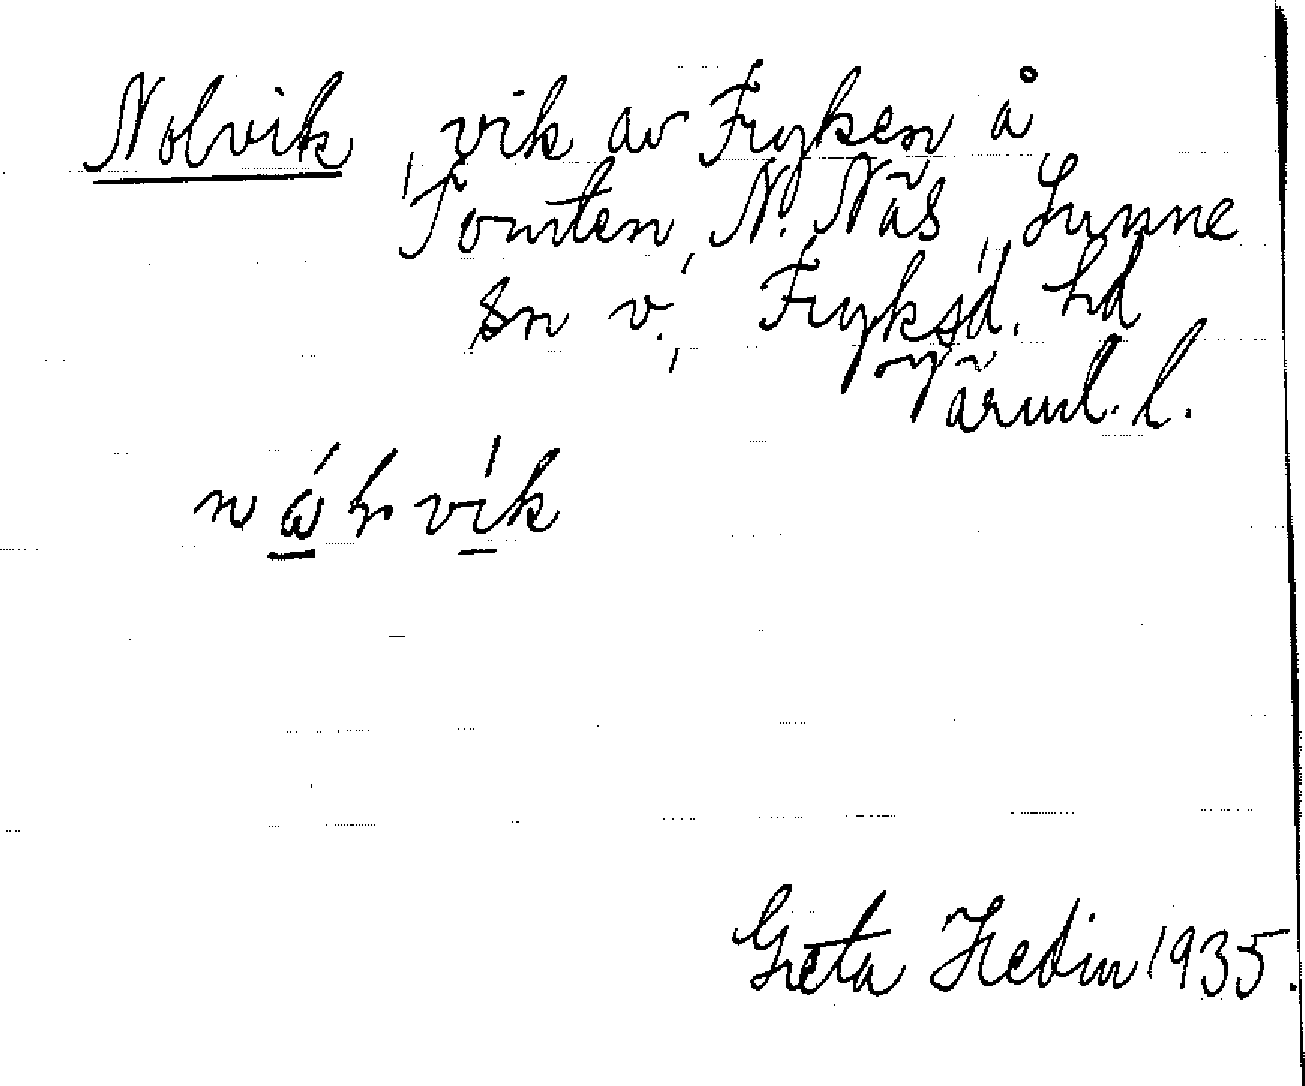 Nolvik, vik av Fryken å
Tomten, N. Näs, Sunne
sn v., Fryksd. hd
Värml. l.
Greta Hedin 1935.